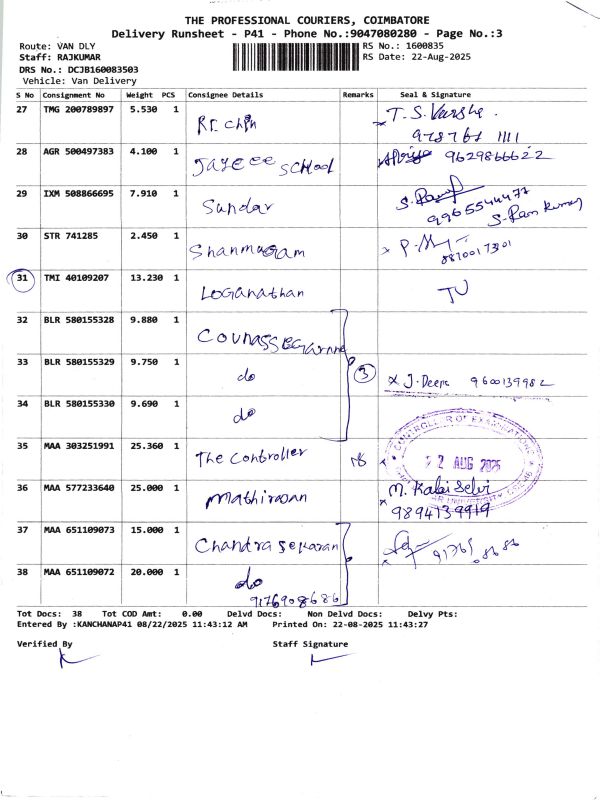 THE PROFESSIONAL COURIERS, COIMBATORE
Delivery Runsheet - P41 - Phone No.:9047080280 - Page No.:3
Route: VAN DLY RS No.: 1600835
Staff: RAJKUMAR RS Date: 22-Aug-2025
DRS No.: DCJB160083503
Vehicle: Van Delivery
S No Consignment No Weight PCS Consignee Details Remarks Seal & Signature
27 TMG 200789897 5.530 1 T.S. Varsha
28 AGR 500497383 4.100 1 Jayeee School 9629866622
29 IXM 508866695 7.910 1 Sundar 9965544477
S. Ram Kumar
30 STR 741285 2.450 1 Shanmugam
31 TMI 40109207 13.230 1 Loganathan
32 BLR 580155328 9.880 1
33 BLR 580155329 9.750 1 do 3 x J. Deepa 9600139982
34 BLR 580155330 9.690 1 do
35 MAA 303251991 25.360 1 The Controller
22 AUG 2025
36 MAA 577233640 25.000 1 M. Kalai Selvi
9894139919
37 MAA 651109073 15.000 1 Chandra Sekaran
38 MAA 651109072 20.000 1 do
9176908686
Tot Docs: 38 Tot COD Amt: 0.00 Delvd Docs: Non Delvd Docs: Delvy Pts:
Entered By :KANCHANAP41 08/22/2025 11:43:12 AM Printed On: 22-08-2025 11:43:27
Verified By Staff Signature